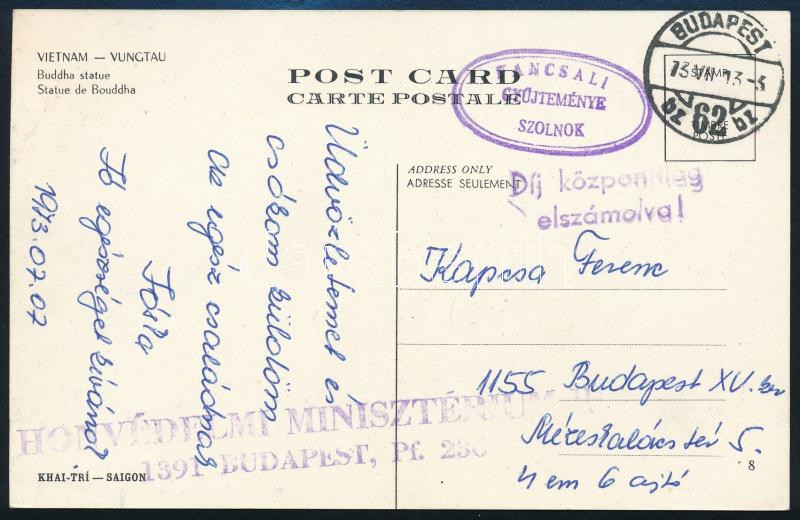 VIETNAM — VUNGTAU
Buddha statue
Statue de Bouddha
POST CARD
CARTE POSTALE
TANCSALI
GYŰJTEMÉNYE
SZOLNOK
BUDAPEST
62
STAMP
TIMBRE
POSTE
ADDRESS ONLY
ADRESSE SEULEMENT
Díj központilag
elszámolva!
Üdvözletemet és
csókom küldöm
az egész családnak
Jó egészséget kívánok
1973.07.07
Kapcsa Ferenc
1155 Budapest XV. ker
tér 5.
4 em 6 ajtó
HONVÉDELMI MINISZTÉRIUM
1391 BUDAPEST, Pf. 236
KHAI-TRÍ — SAIGON
8